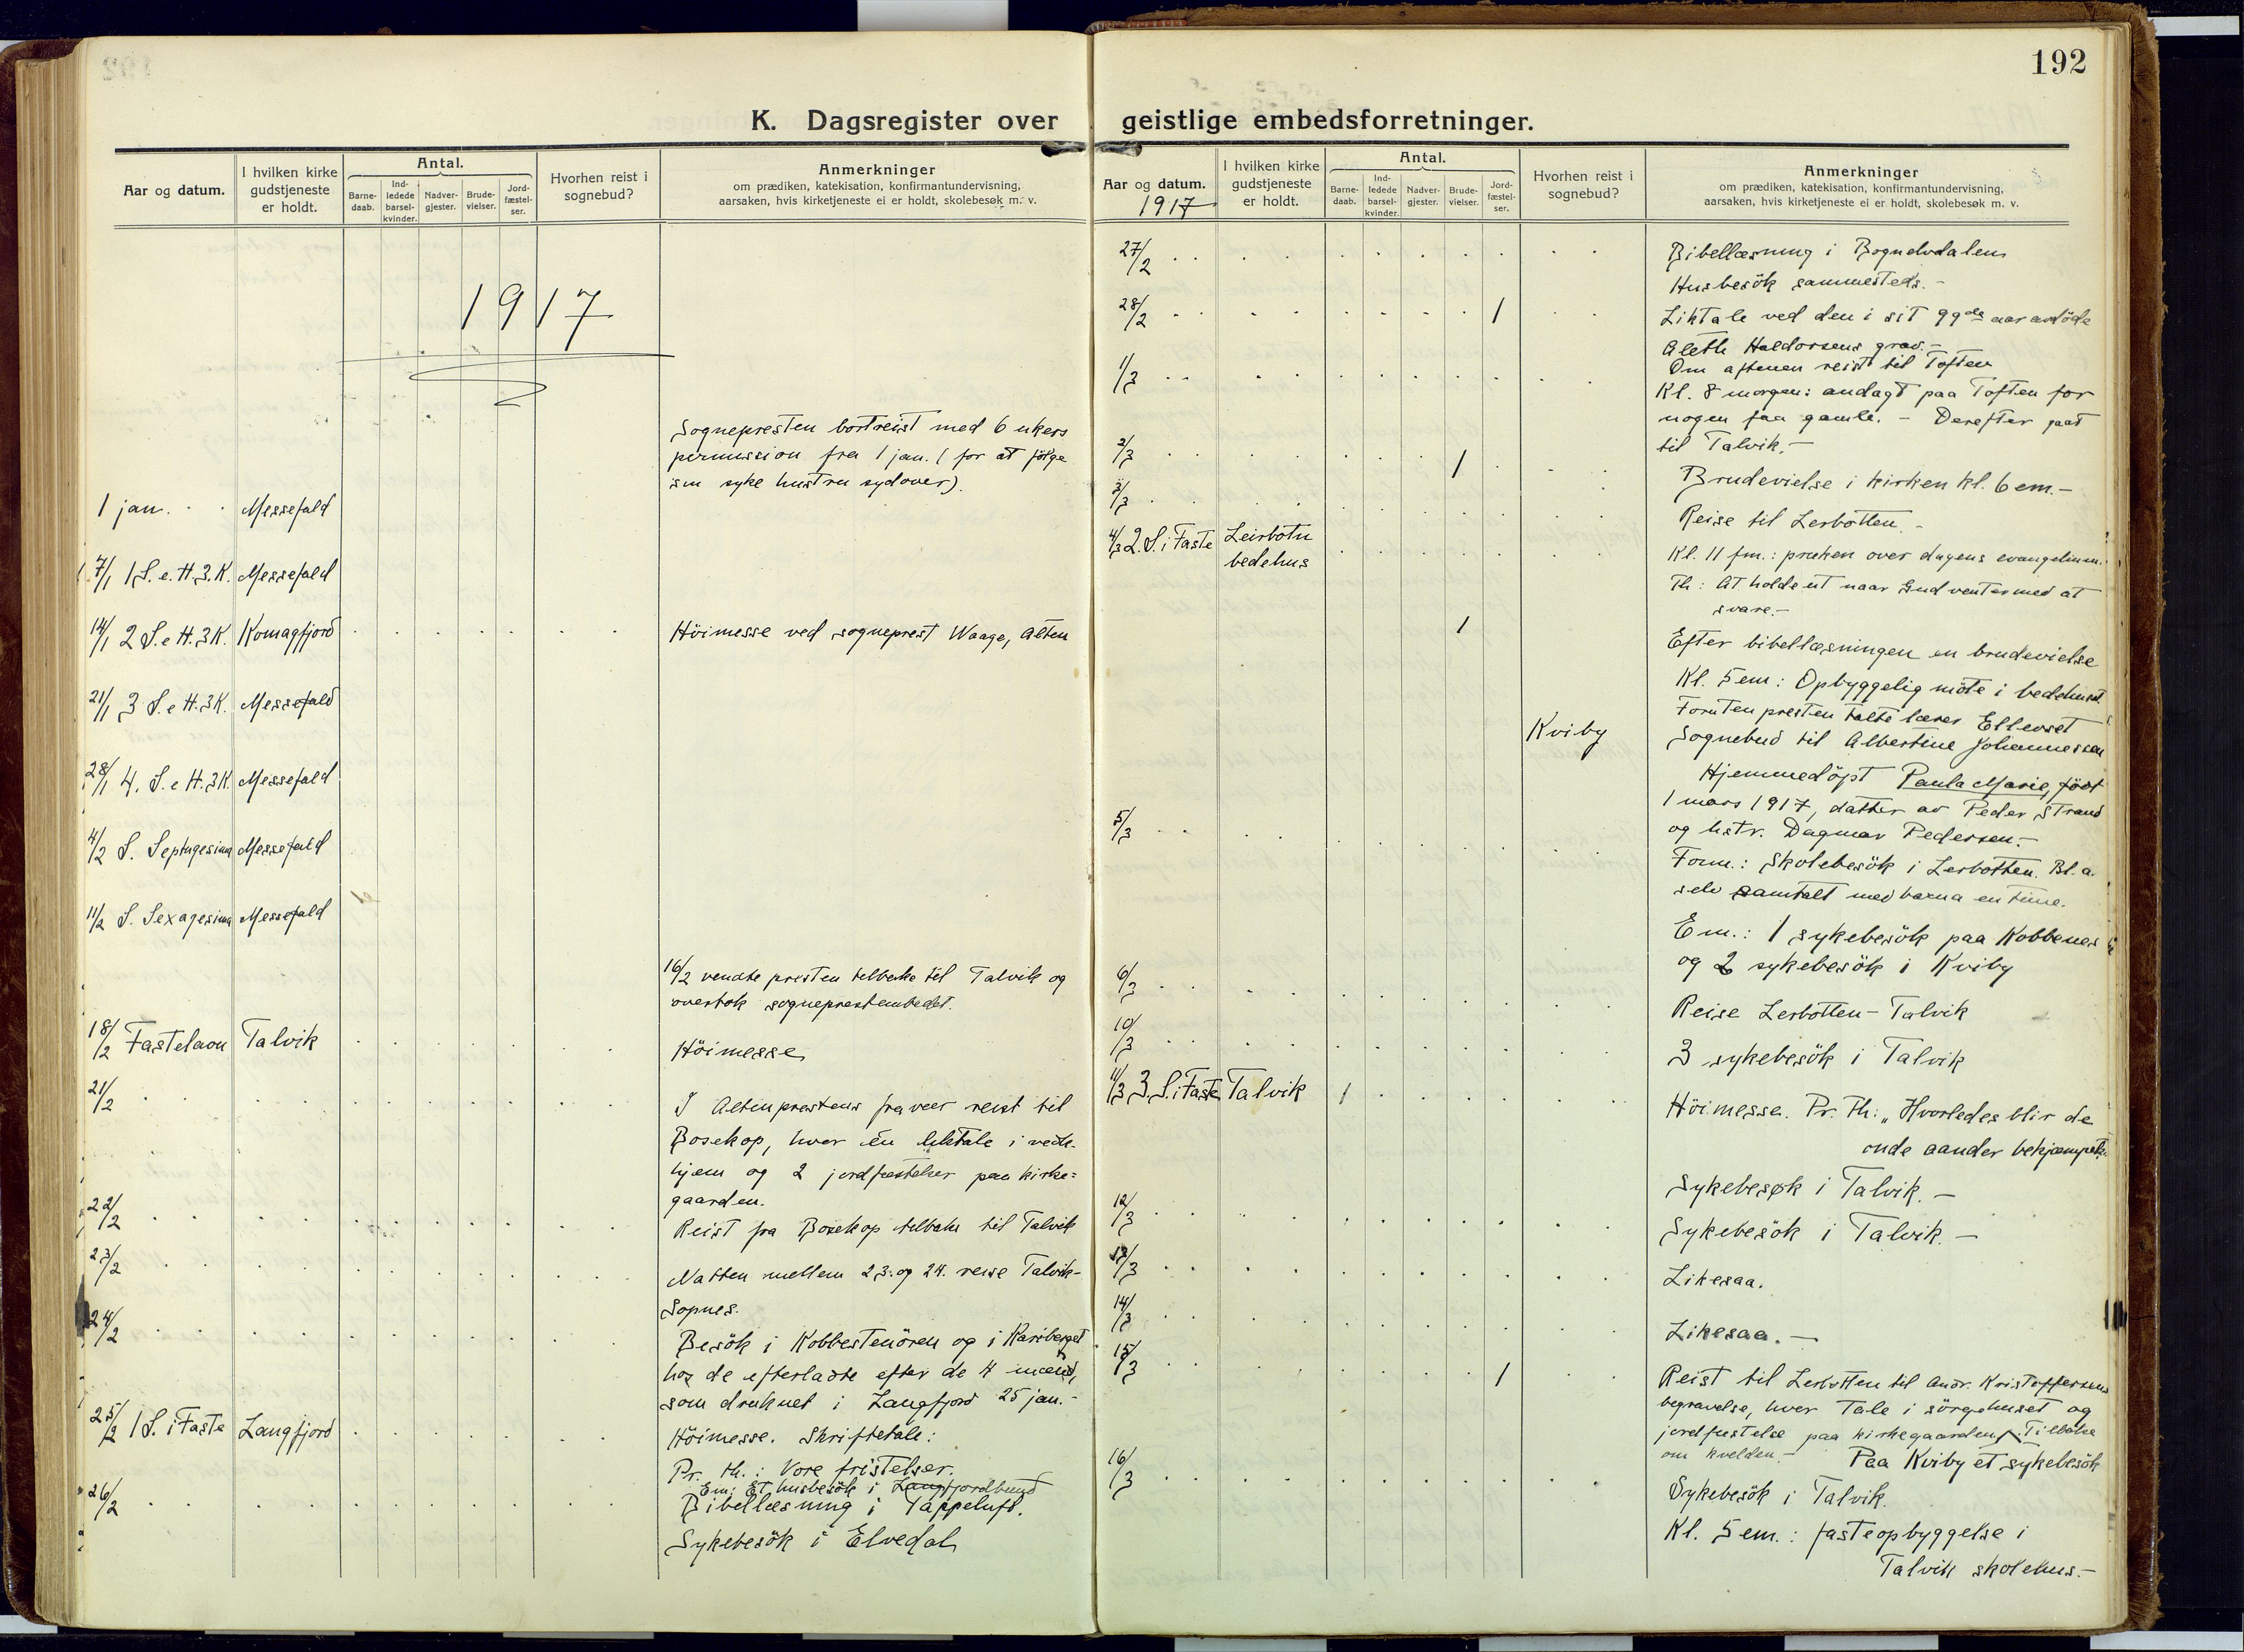 192
K. Dagsregister over geistlige embedsforretninger.
Aar og datum.
I hvilken kirke gudstjeneste er holdt.
Antal.
Barne-daab.
Ind-ledede barsel-kvinder.
Nadver-gjester.
Brude-vielser.
Jord-fæstel-ser.
Hvorhen reist i sognebud?
Anmerkninger
om prædiken, katekisation, konfirmantundervisning,
aarsaken, hvis kirketjeneste ei er holdt, skolebesøk m. v.
1917
Sognepresten bortreist med 6 ukers
permission fra 1 jan. (for at følge
sin syke hustru sydover).
1 jan. Messefald
7/1 1 S. e. H. 3. K. Messefald
14/1 2 S. e H. 3K. Komagfjord Höimesse ved sogneprest Waage, Alten
21/1 3 S. e H. 3K. Messefald
28/1 4. S. e H. 3K. Messefald
4/2 S. Septuagesima Messefald
11/2 S. Sexagesima Messefald
16/2 vendte presten tilbake til Talvik og
overtok sogneprestembedet.
18/2 Fastelavn Talvik Höimesse
21/2 I Altenprestens fravær reist til
Bosekop, hvor én liktale i
hjem og 2 jordfæstelser paa kirke=
gaarden.
22/2 Reist fra Bosekop tilbake til Talvik
23/2 Natten mellem 23. og 24. reise Talvik-
Sopnes.
24/2 Besök i Kobbestenören og i
hos de efterladte efter de 4 mænd,
som druknet i Langfjord 25 jan.-
25/2 1 S. i Faste Langfjord Höimesse. Skriftetale:
Pr. th.: Vore fristelser.
Em: Et husbesök i Langfjordbund
26/2 Bibellæsning i Tappeluft.
Sykebesök i Elvedal
Aar og datum.
1917
I hvilken kirke gudstjeneste er holdt.
Antal.
Barne-daab.
Ind-ledede barsel-kvinder.
Nadver-gjester.
Brude-vielser.
Jord-fæstel-ser.
Hvorhen reist i sognebud?
Anmerkninger
om prædiken, katekisation, konfirmantundervisning,
aarsaken, hvis kirketjeneste ei er holdt, skolebesøk m. v.
27/2 Bibellæsning i Bognelvdalen
Husbesök sammesteds.-
28/2 1 Liktale ved den i sit 99de aar avdöde
Aleth Haldorsens grav.-
Om aftenen reist til Toften
1/3 Kl. 8 morgen: andagt paa Toften for
nogen faa gamle. - Derefter gaat
til Talvik.-
2/3 1 Brudevielse i kirken kl. 6 em.-
3/3 Reise til Lerbotten -
4/3 2. S. i Faste Leirbotn bedehus Kl. 11 fm.: præken over dagens evangelium.
Th: At holde ut naar Gud venter med at
svare.-
1 Efter bibellæsningen en brudevielse
Kl. 5 em: Opbyggelig möte i bedehuset
Foruten presten talte lærer Ellevset
Kviby Sognebud til Albertine Johannessen
Hjemmedöpt Paula Marie, födt
1 mars 1917, datter av Peder Strand
og hstr. Dagmar Pedersen.-
5/3 Form.: Skolebesök i Lerbotten. Bl.a.
selv samtalt med barna en time.
Em.: 1 sykebesök paa Kobbenes
og 2 sykebesök i Kviby
6/3 Reise Lerbotten-Talvik
10/3 3 sykebesök i Talvik
11/3 3. S. i Faste Talvik 1 Höimesse. Pr. Th: "Hvorledes blir de
onde aander bekjæmpet.
Sykebesøk i Talvik. -
12/3 Sykebesök i Talvik. -
13/3 Likesaa.
14/3 Likesaa. -
15/3 1 Reist til Lerbotten til Andr. Kristoffersens
begravelse, hvor Tale i sörgehuset og
jordfæstelse paa kirkegaarden. Tilbake
om kvelden.- Paa Kviby et sykebesök
16/3 Sykebesök i Talvik.
Kl. 5 em.: fasteopbyggelse i
Talvik skolehus.-